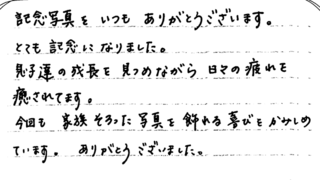 記念写真を いつも ありがとうございます。
とても 記念に なりました。
息子達の成長を 見つめながら 日々の 疲れを
癒されてます。
今回も 家族 そろった 写真を 飾れる 喜びを かみしめ
ています。 ありがとう ございました。